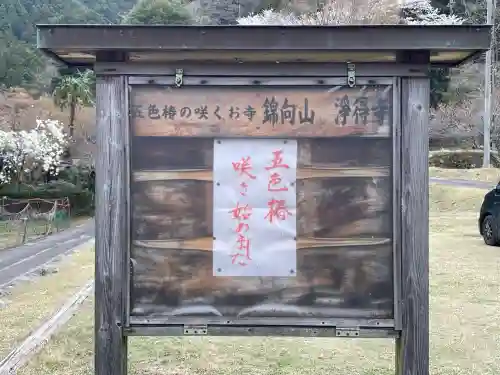 五色椿の咲くお寺 錦向山 浄得寺
五色椿
咲き始めました